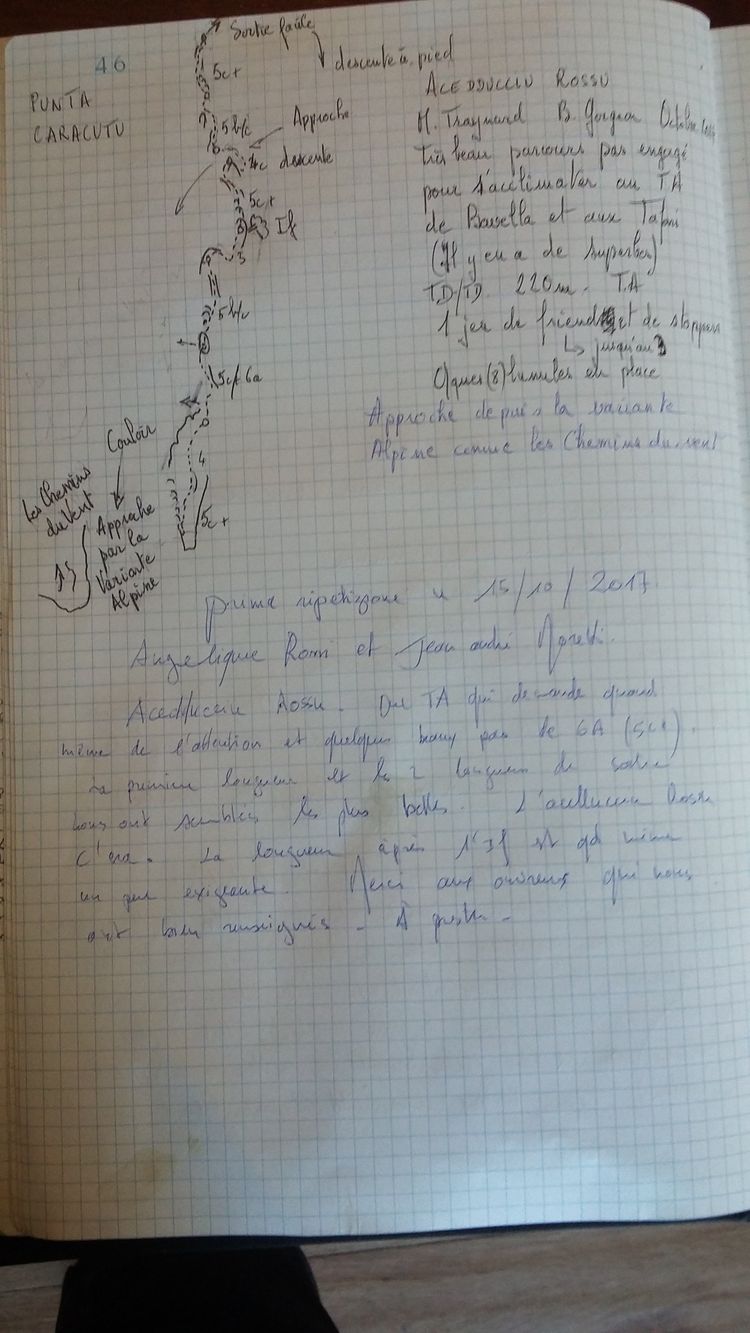 46
PUNTA
CARACUTU
Sortie facile
descente à pied
5c+
5b/c
Approche
4c descente
5c+
If
3
5b/c
5c+ 6a
4
5c+
Couloir
Les Chemins
du Vent
Approche
par la
Variante
Alpine
ACEDDUCCIU ROSSU
M. Traynard B. Gorgeon Octobre
Très beau parcours pas engagé
pour s'acclimater au TA
de Bavella et aux Tafoni
(Il y en a de superbes)
TD/TD. 220m. TA
1 jeu de friends et de stoppers
↳ jusqu'au 3
Qques (8) lunules en place
Approche depuis la variante
Alpine comme les Chemins du vent
prima ripetizione u 15/10/2017
Angelique Rossi et Jean André
Acedducciu Rossu. Du TA qui demande quand
même de l'attention et quelques beaux pas de 6A (5c+).
La première longueur et les 2 longueurs de sortie
nous ont semblés les plus belles. L'acellucciu Rossu
c'era. La longueur après l'If est qd même
un peu exigeante. Merci aux ouvreurs qui nous
ont bien renseignés. À prestu.